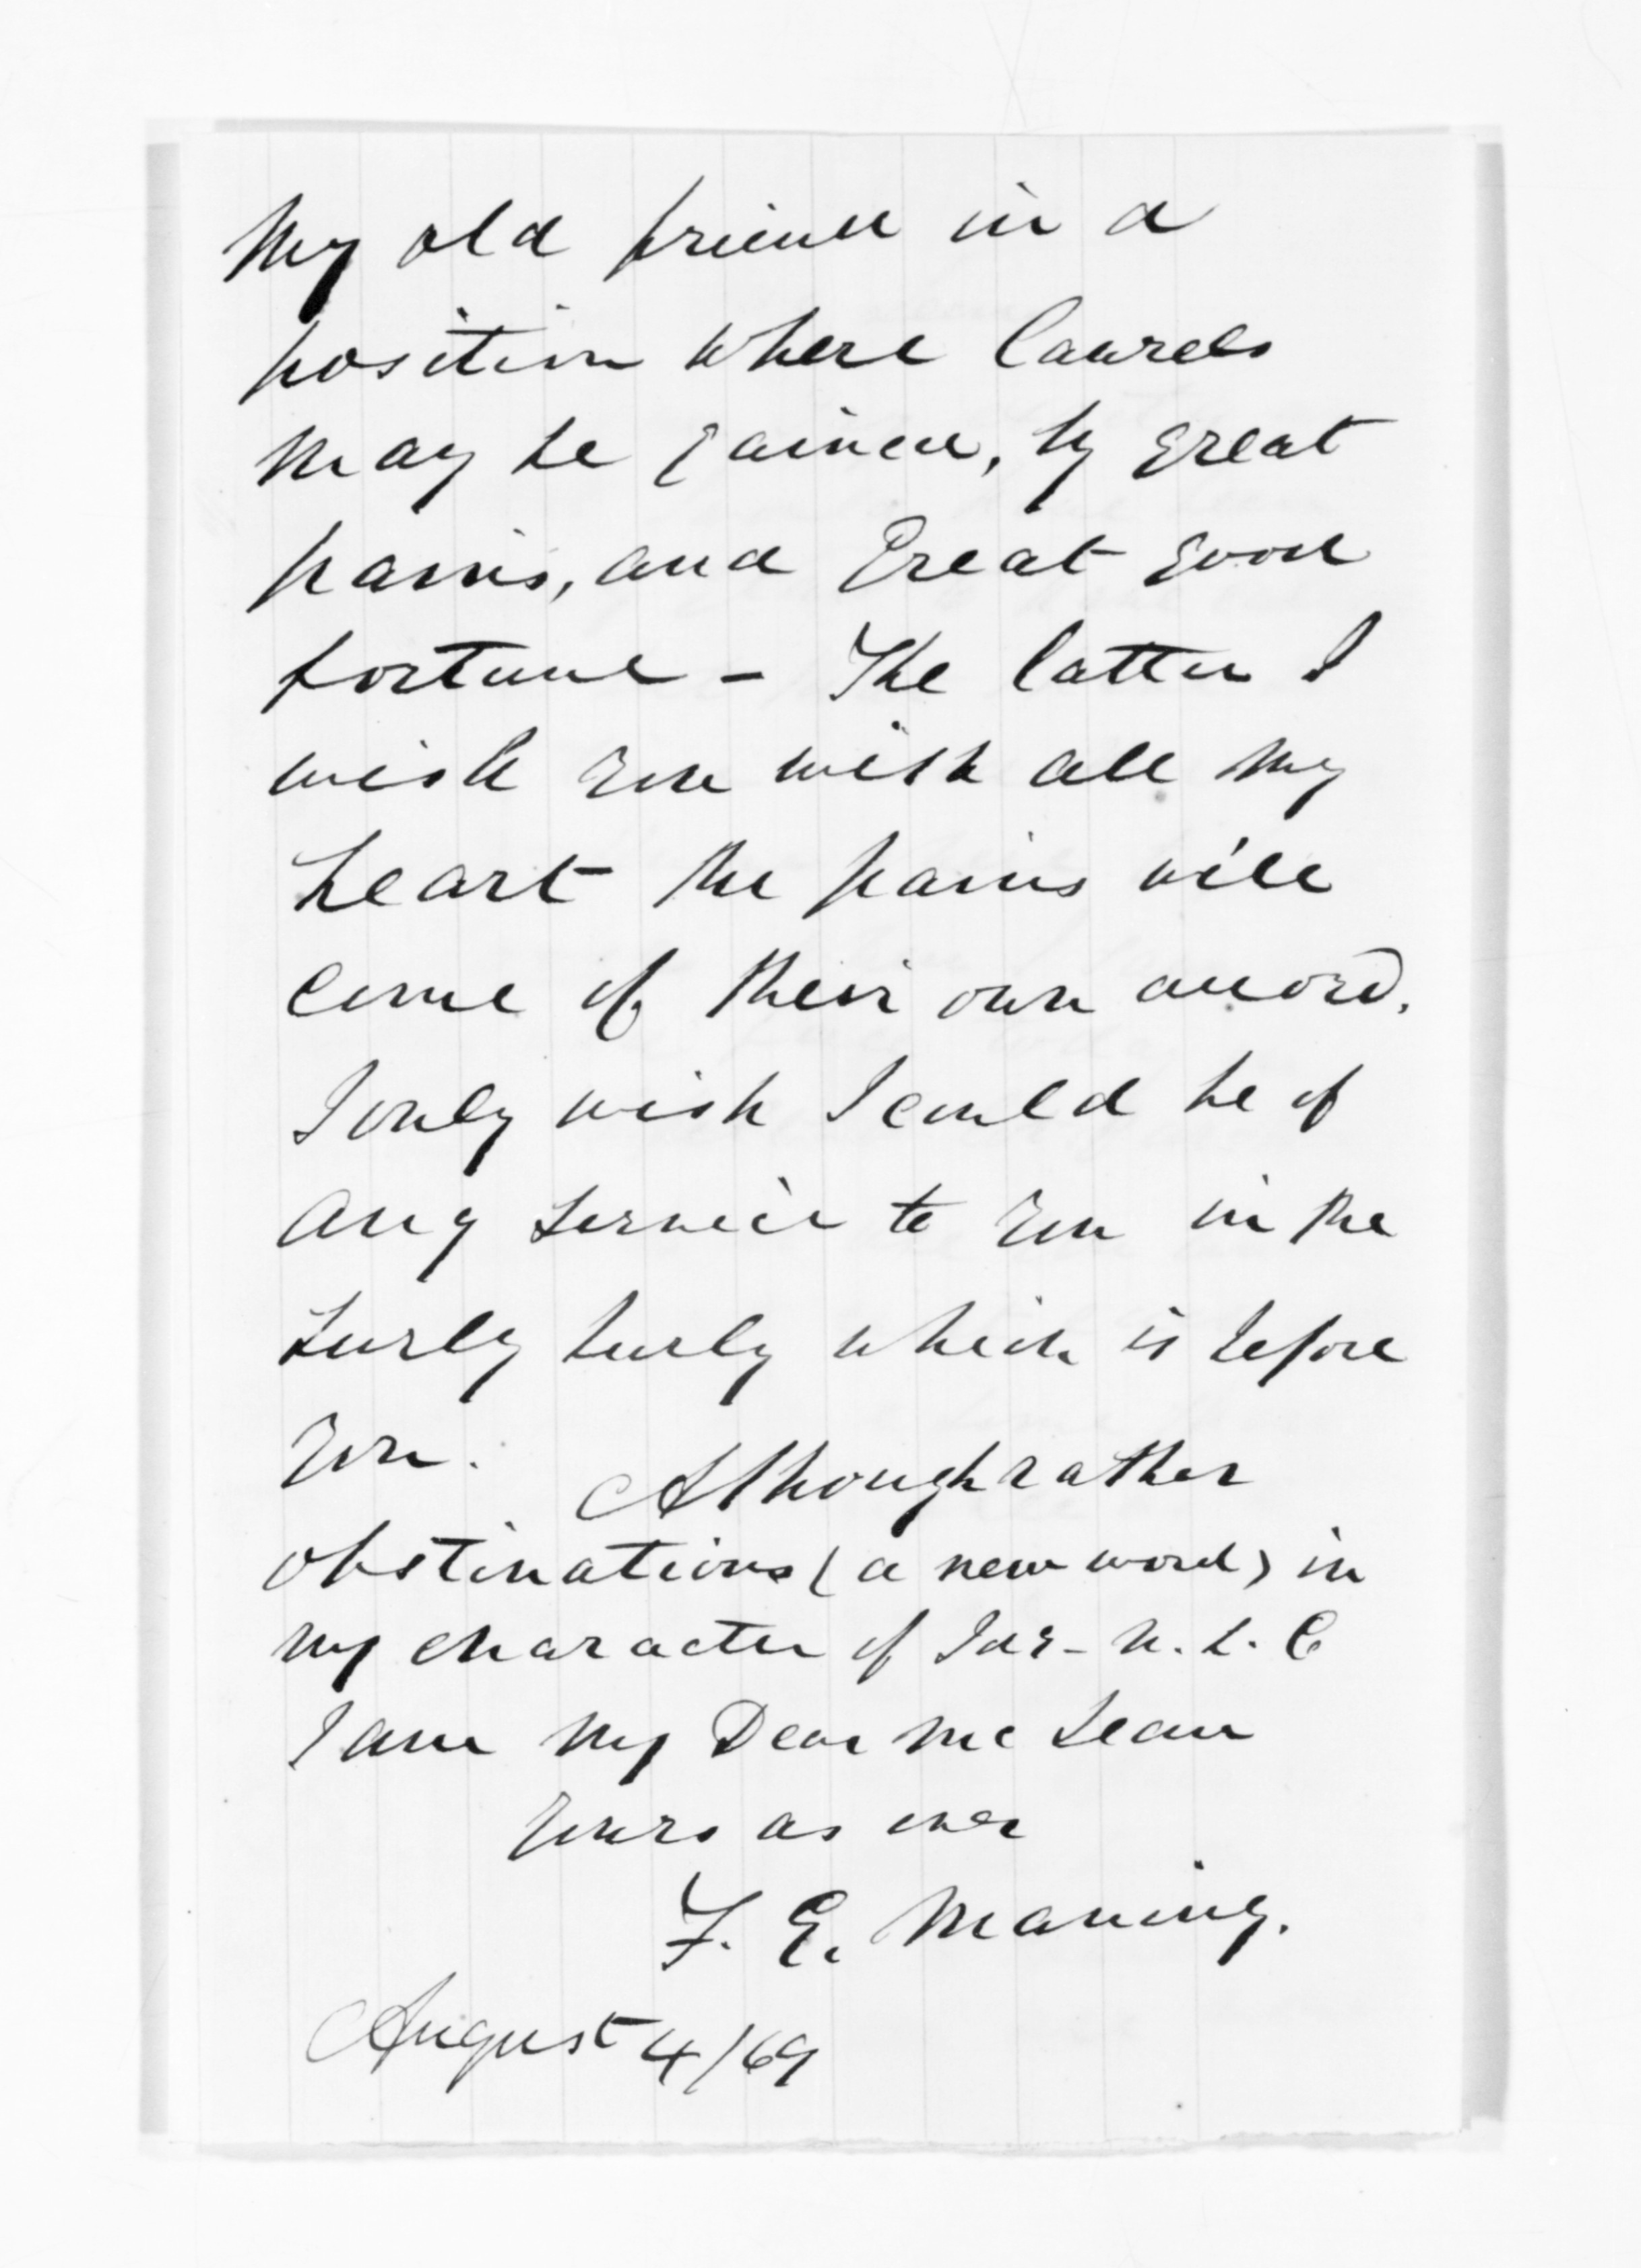 My old friend in a
position where laurels
may be gained, by great
pains, and great good
fortune – The latter I
wish you with all my
heart the pains will
come of their own accord.
I only wish I could be of
any service to you in the
hurly burly which is before
you. Although rather
obstinatious (a new word) in
my character of Jdg - N. L. C
I am my Dear McLean
yours as ever
F. E. Maning.
August 4/69